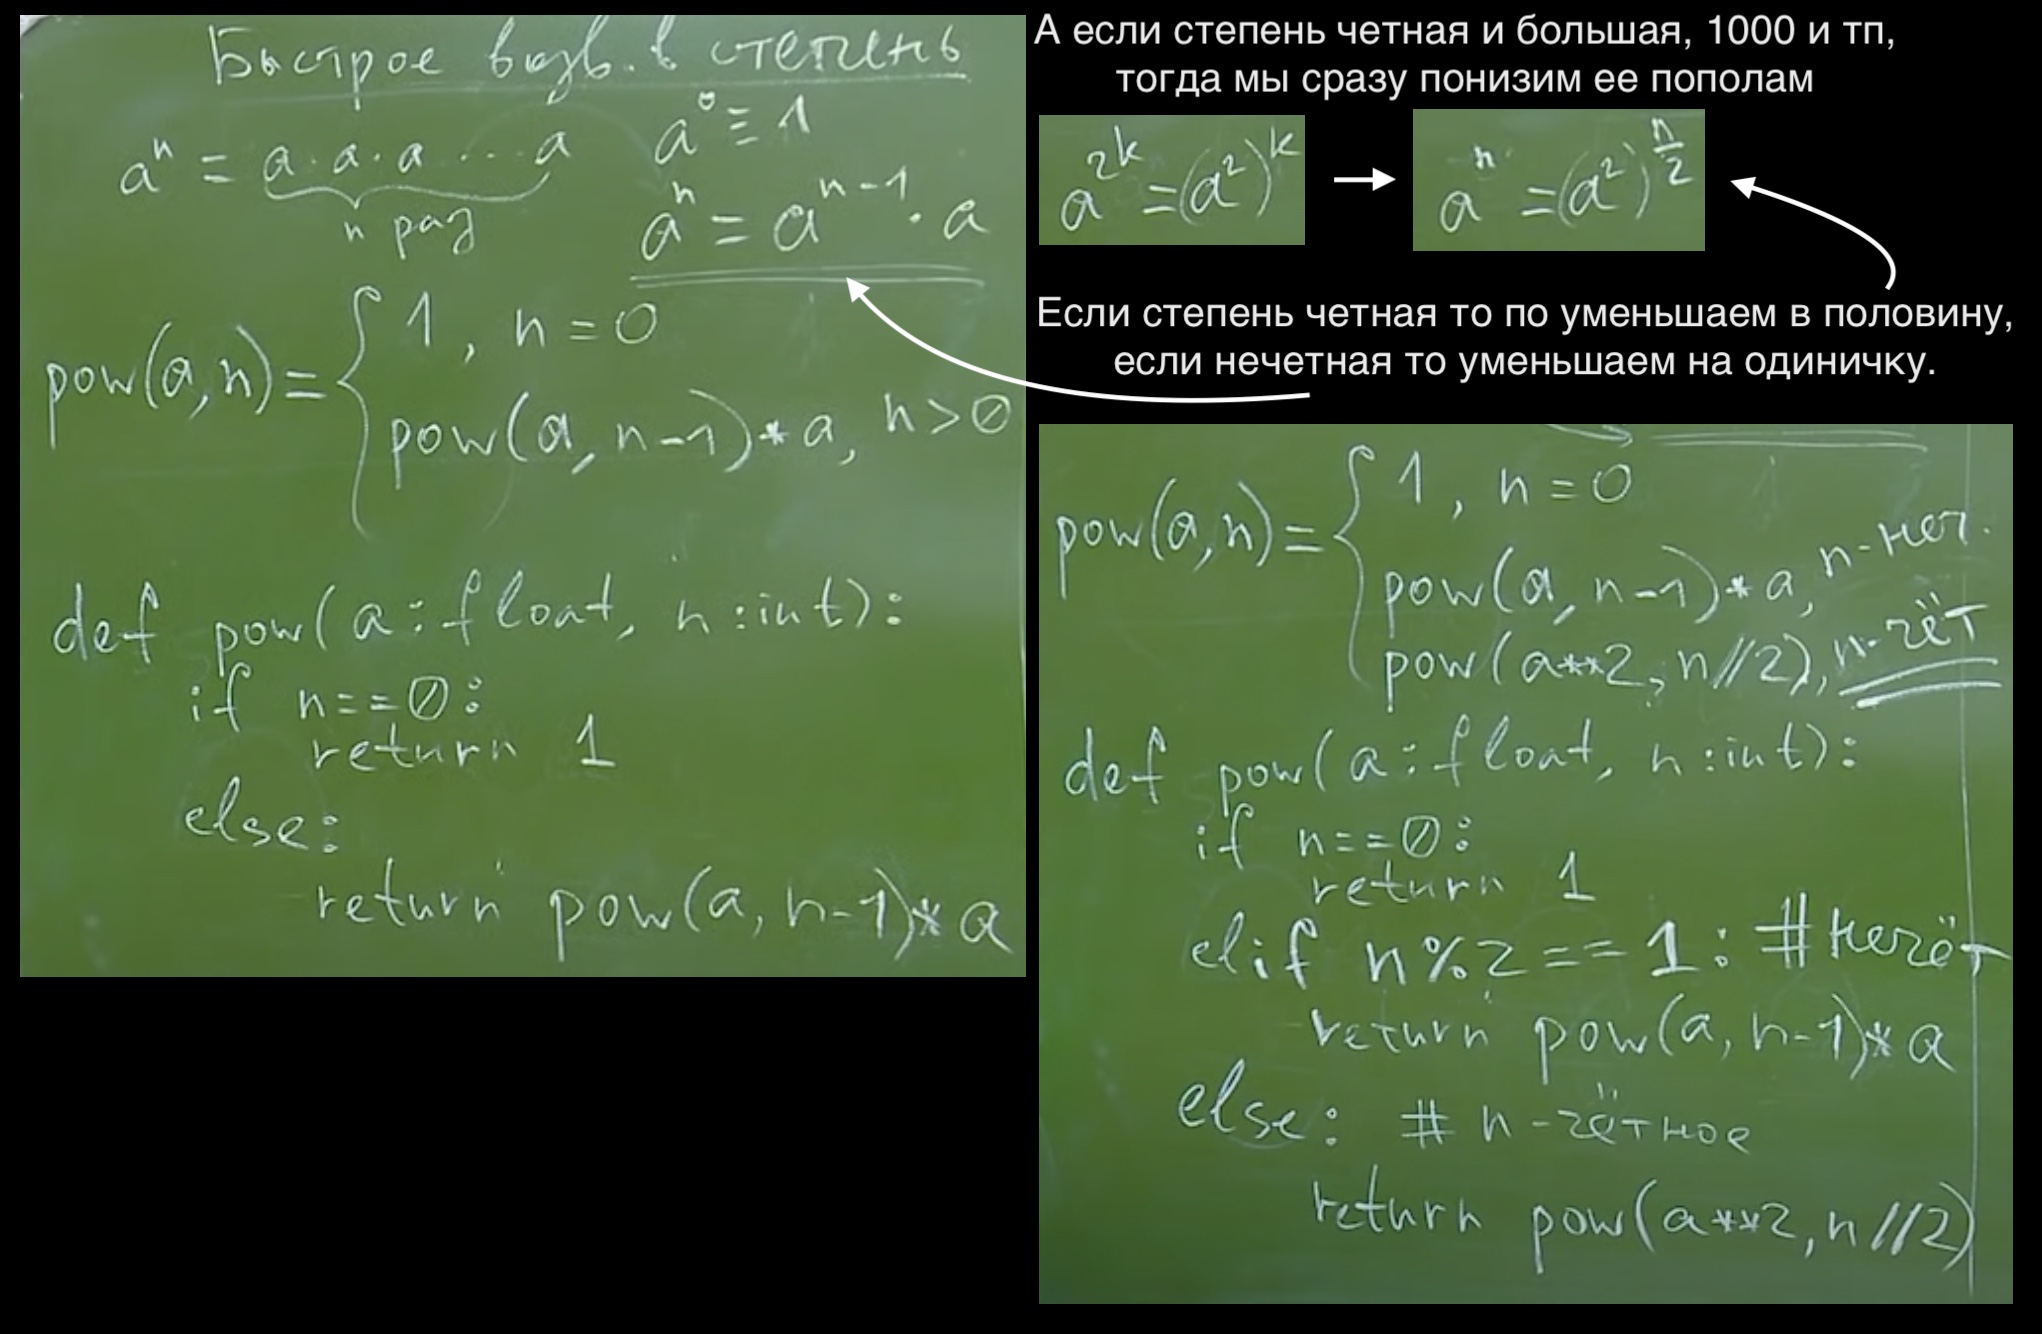 Быстрое возв. в степень
aⁿ = a·a·a ... a
n раз
a⁰ ≡ 1
aⁿ = aⁿ⁻¹ · a
pow(a,n) = { 1, n = 0
pow(a, n-1) * a, n > 0
def pow(a: float, n: int):
if n == 0:
return 1
else:
return pow(a, n-1) * a
А если степень четная и большая, 1000 и тп,
тогда мы сразу понизим ее пополам
a²ᵏ = (a²)ᵏ → aⁿ = (a²)^(n/2)
Если степень четная то по уменьшаем в половину,
если нечетная то уменьшаем на одиничку.
pow(a,n) = { 1, n = 0
pow(a, n-1) * a, n-неч.
pow(a**2, n//2), n-чёт
def pow(a: float, n: int):
if n == 0:
return 1
elif n % 2 == 1: # нечёт
return pow(a, n-1) * a
else: # n - чётное
return pow(a**2, n//2)